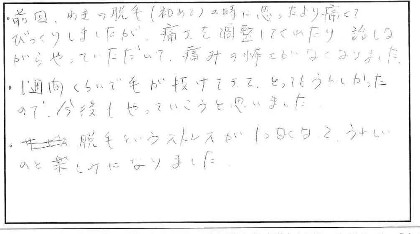 ・前回、わきの脱毛(初めて)の時に思ったより痛くて
びっくりしましたが、痛さを調整してくれたり 話しな
がらやっていただいて、痛みの怖さがなくなりました。
・1週間くらいで毛が抜けてきて、とってもうれしかった
ので、今後もやっていこうと思いました
・脱毛というストレスが1つなくなって、うれしい
のと楽しみになりました。